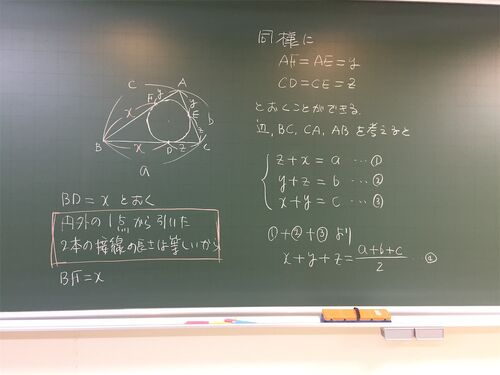 C
A
F
y
y
b
x
E
z
B
x
D
z
C
a
BD = x とおく
円外の1点から引いた
2本の接線の長さは等しいから
BF = x
同様に
AF = AE = y
CD = CE = z
とおくことができる.
辺, BC, CA, ABを考えると
z + x = a … ①
y + z = b … ②
x + y = c … ③
① + ② + ③ より
x + y + z = \frac{a+b+c}{2} … ④